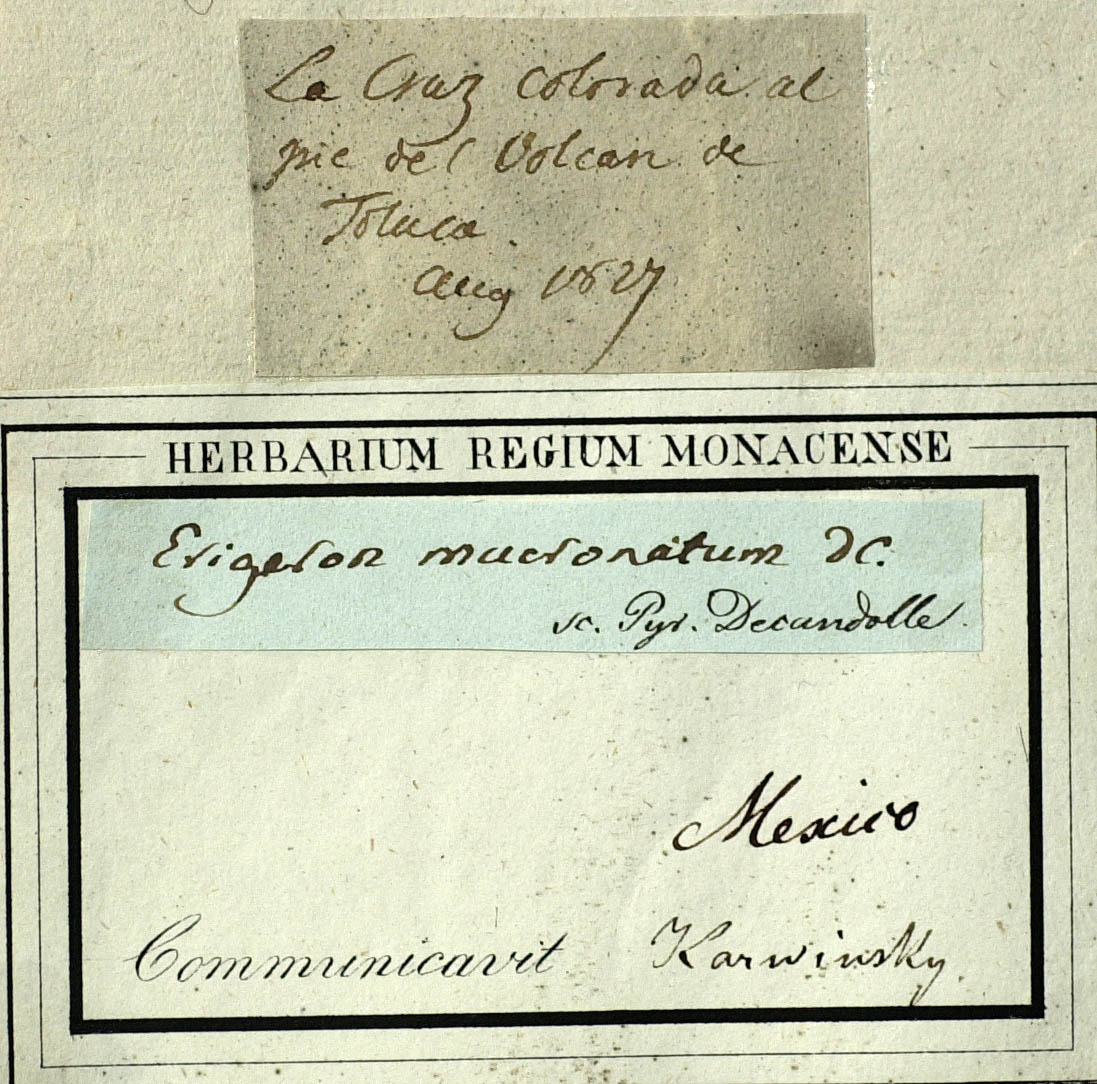 La Cruz colorada al
pie del Volcan de
Toluca.
Aug 1827
HERBARIUM REGIUM MONACENSE
Erigeron mucronatum DC.
sc. Pyr. Decandolle.
Mexico
Communicavit Karwinsky.